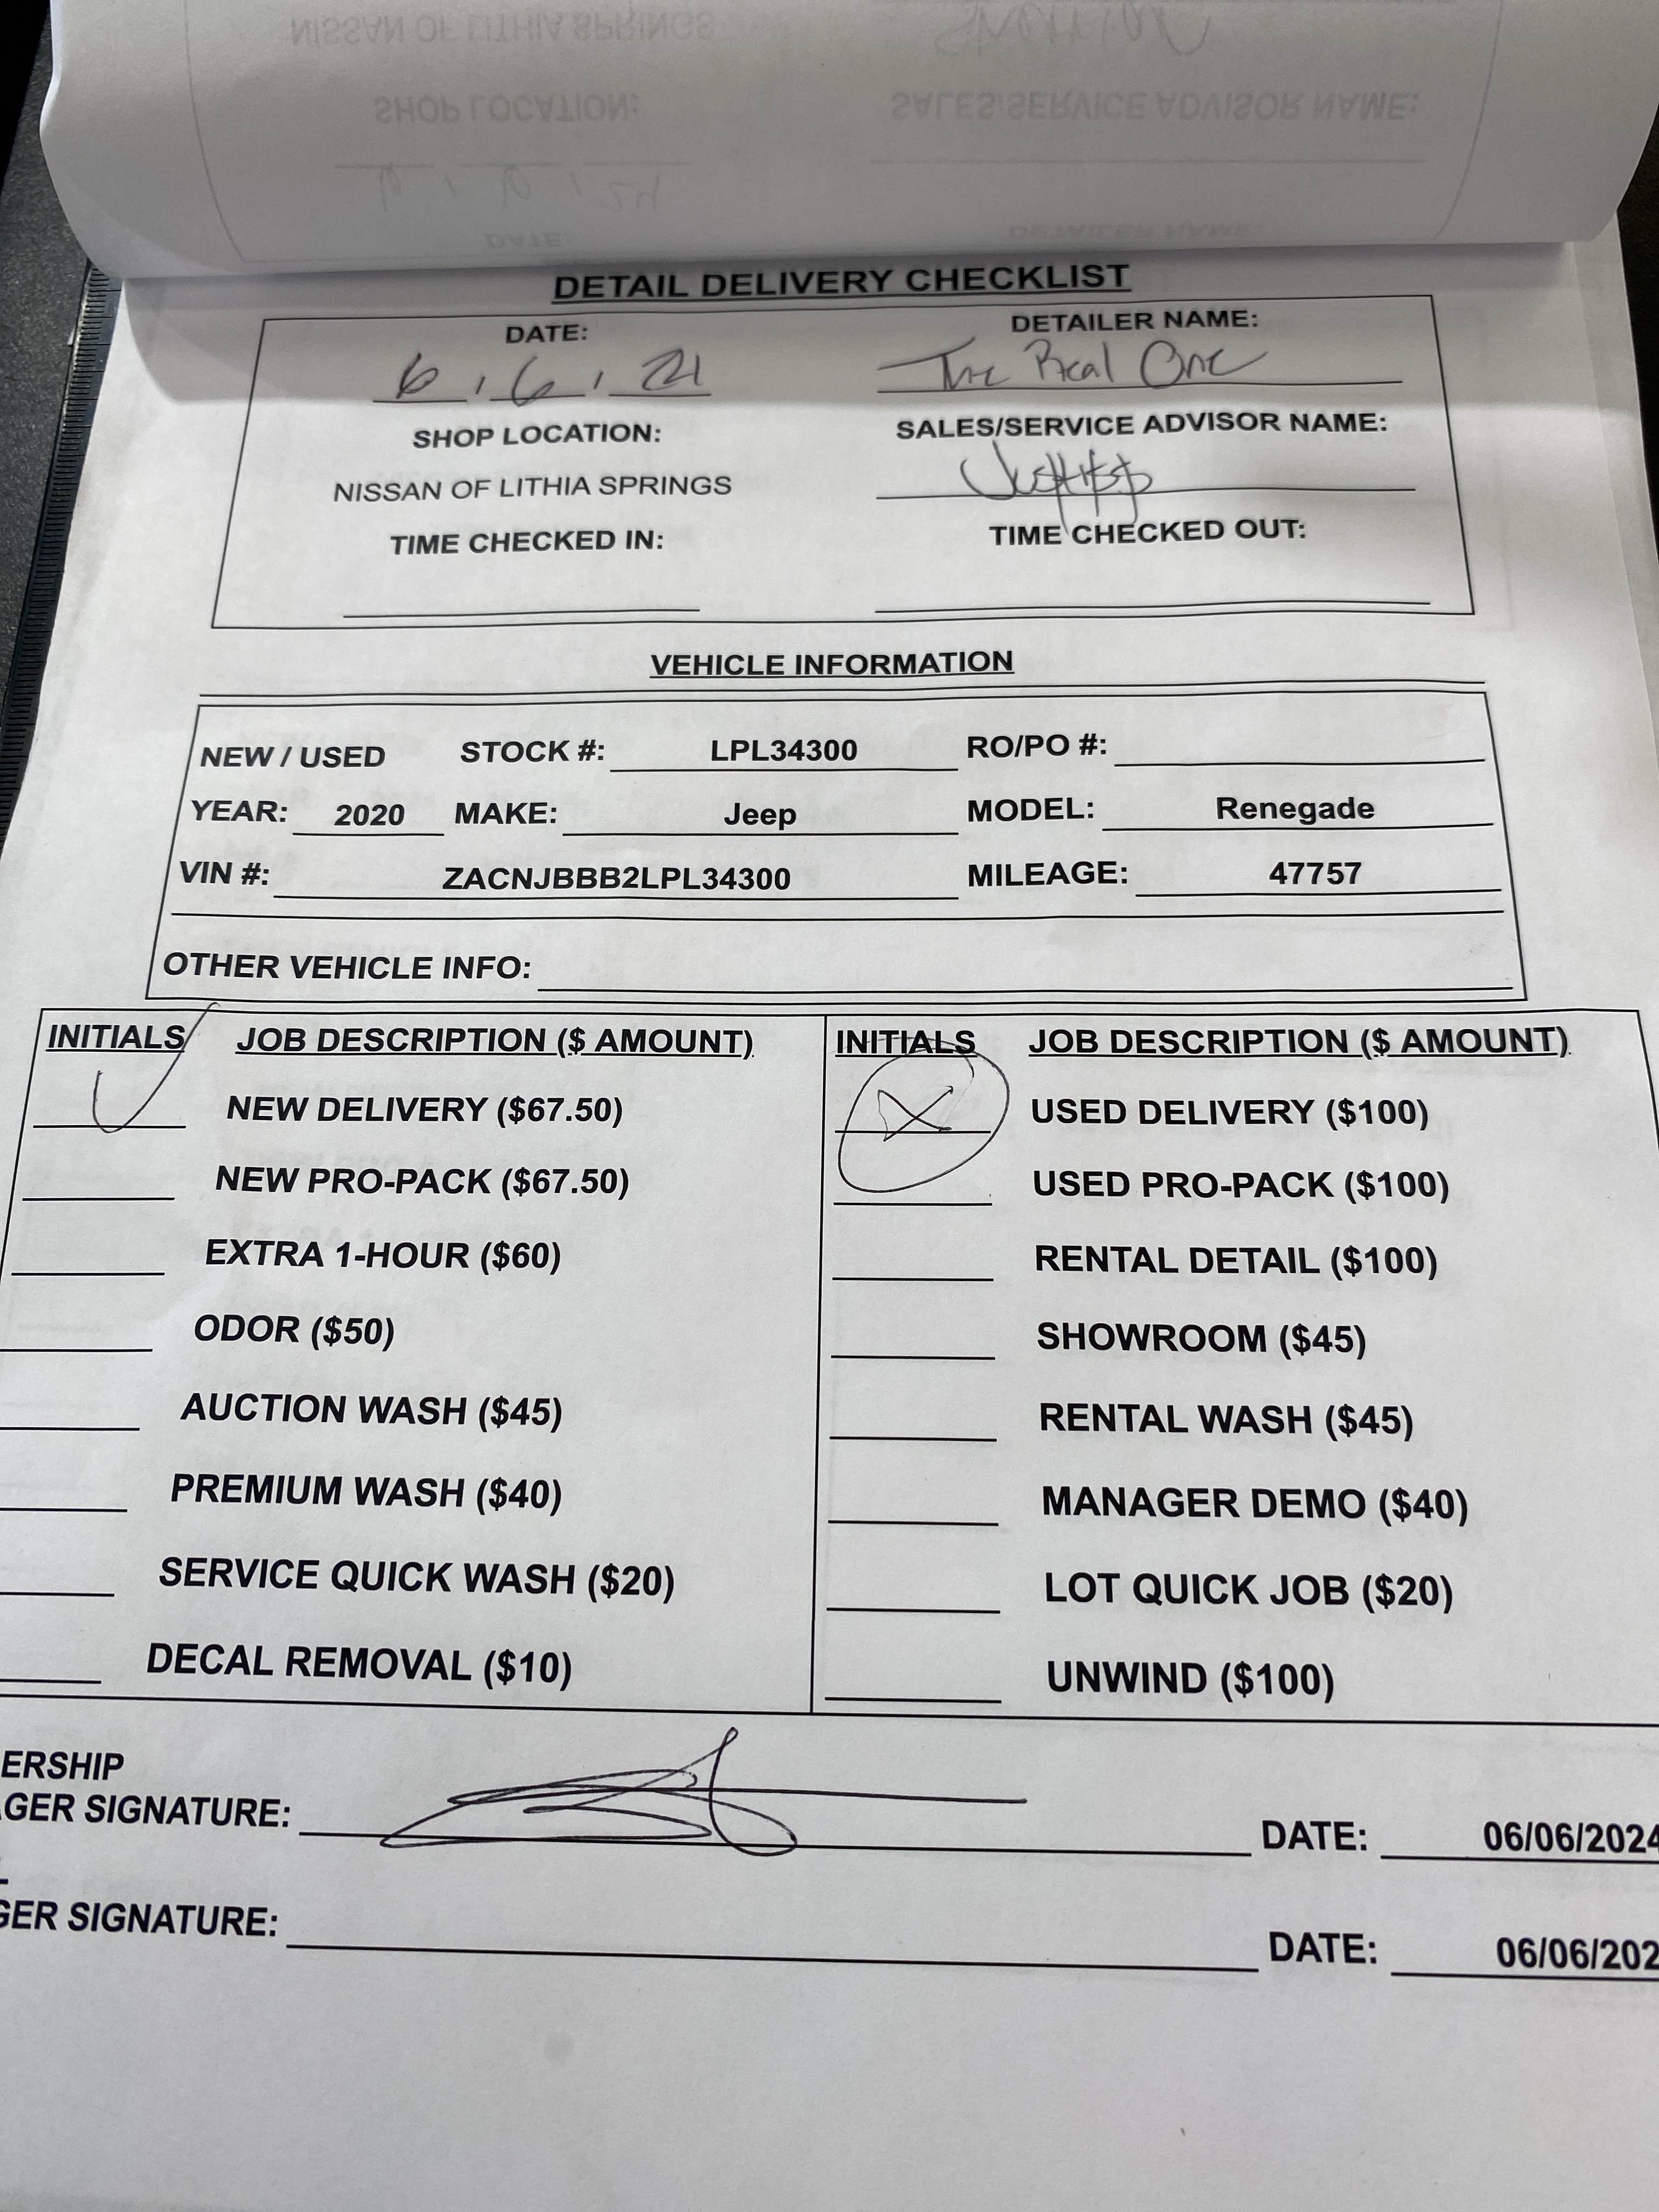 NISSAN OF LITHIA SPRINGS
SHOP LOCATION: SALES/SERVICE ADVISOR NAME:
6 , 6 , 24
DATE: DETAILER NAME:
DETAIL DELIVERY CHECKLIST
DATE: DETAILER NAME:
6 , 6 , 24 The Real One
SHOP LOCATION: SALES/SERVICE ADVISOR NAME:
NISSAN OF LITHIA SPRINGS
TIME CHECKED IN: TIME CHECKED OUT:
VEHICLE INFORMATION
NEW / USED STOCK #: LPL34300 RO/PO #:
YEAR: 2020 MAKE: Jeep MODEL: Renegade
VIN #: ZACNJBBB2LPL34300 MILEAGE: 47757
OTHER VEHICLE INFO:
INITIALS JOB DESCRIPTION ($ AMOUNT)
NEW DELIVERY ($67.50)
NEW PRO-PACK ($67.50)
EXTRA 1-HOUR ($60)
ODOR ($50)
AUCTION WASH ($45)
PREMIUM WASH ($40)
SERVICE QUICK WASH ($20)
DECAL REMOVAL ($10)
INITIALS JOB DESCRIPTION ($ AMOUNT)
X USED DELIVERY ($100)
USED PRO-PACK ($100)
RENTAL DETAIL ($100)
SHOWROOM ($45)
RENTAL WASH ($45)
MANAGER DEMO ($40)
LOT QUICK JOB ($20)
UNWIND ($100)
ERSHIP
GER SIGNATURE: DATE: 06/06/2024
GER SIGNATURE: DATE: 06/06/202